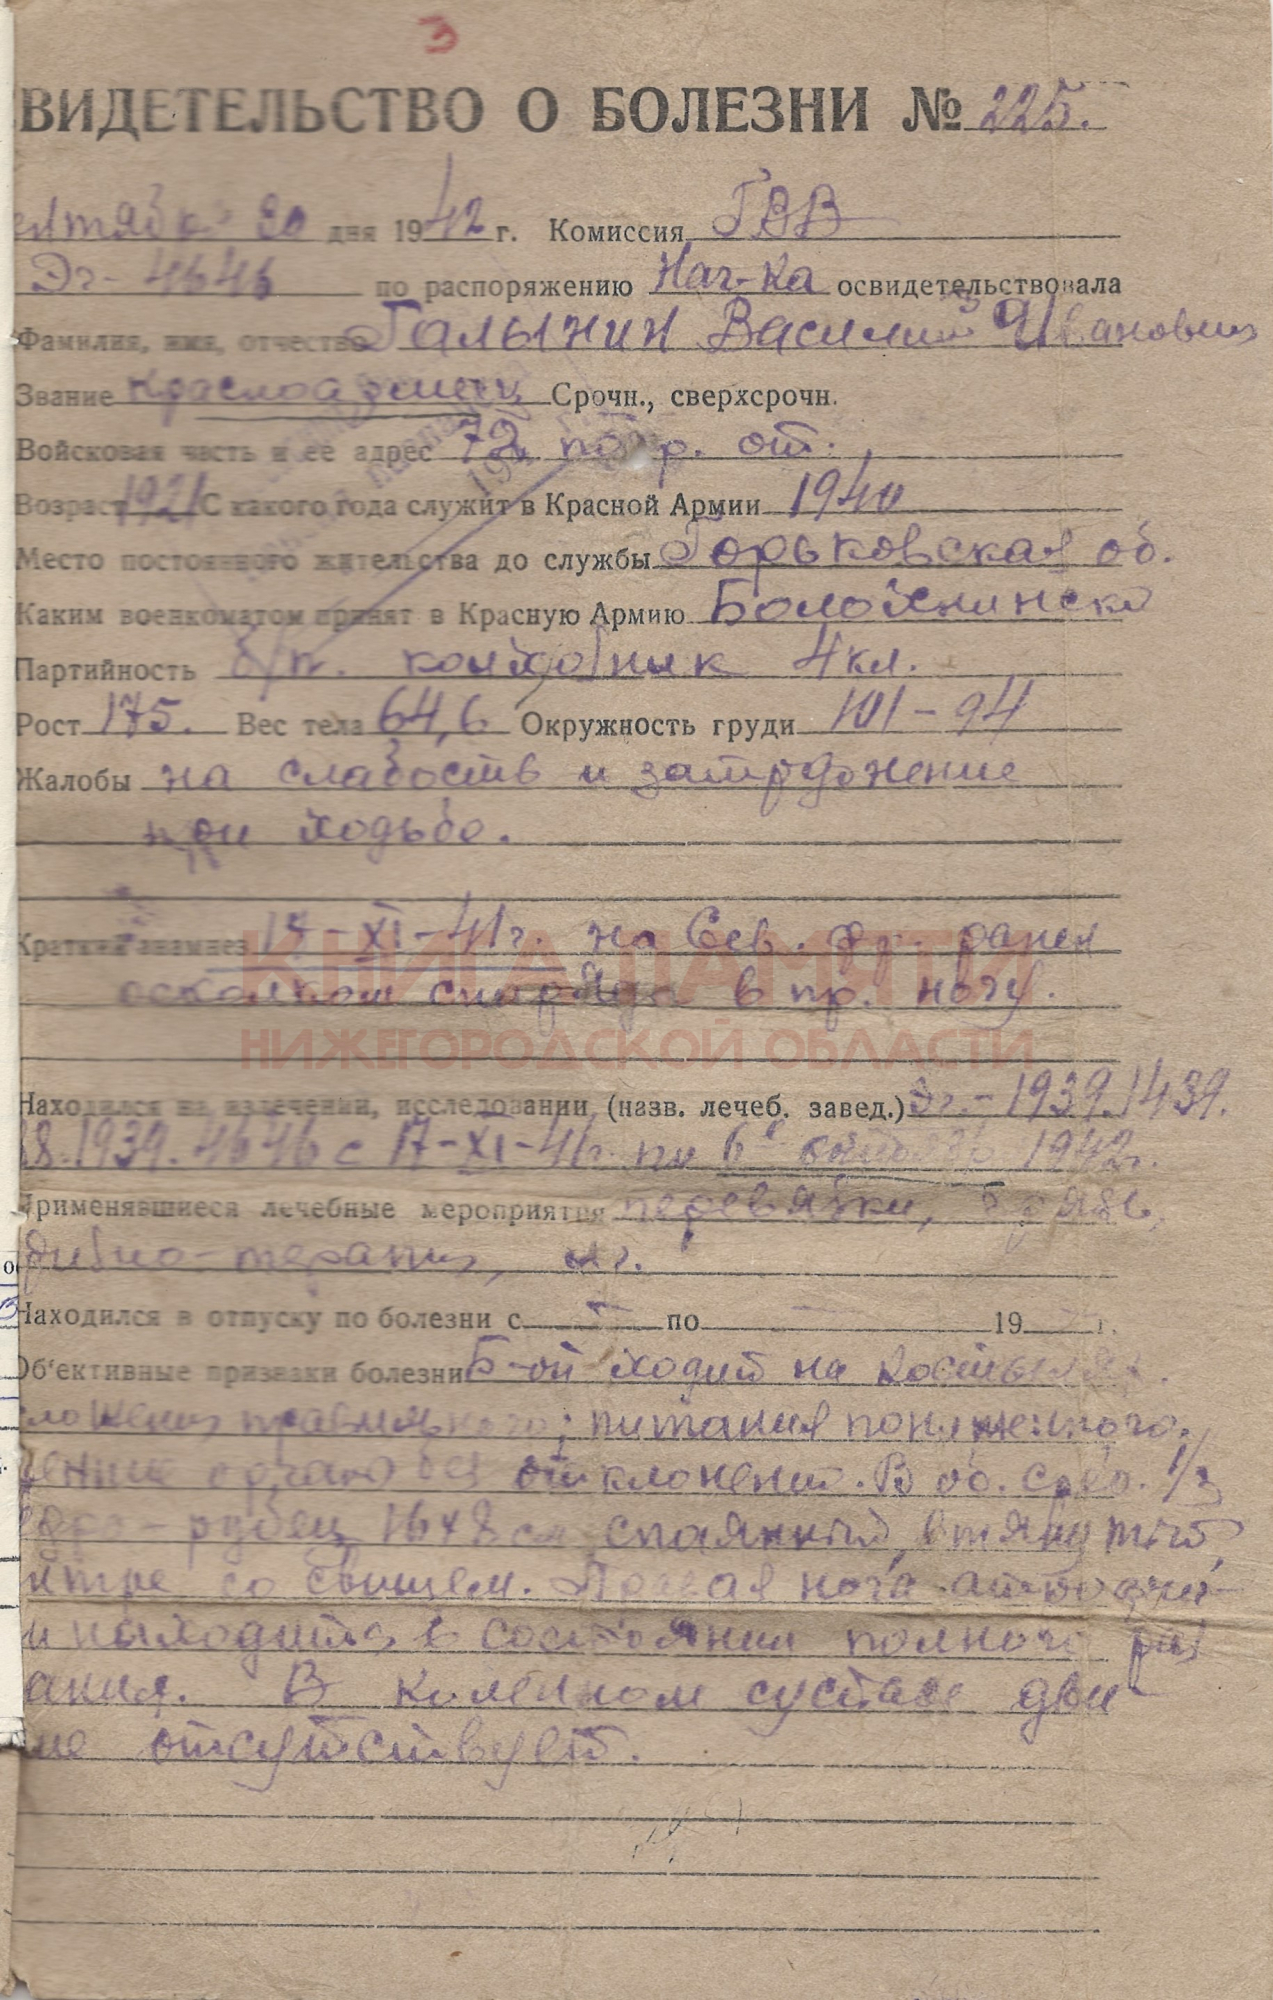 3
ВИДЕТЕЛЬСТВО О БОЛЕЗНИ № 225.
ентября 30 дня 1942 г. Комиссия ГВВ
Эг-4646 по распоряжению Нач-ка освидетельствовала
Фамилия, имя, отчество Галынин Василий Иванович
Звание красноармеец Срочн., сверхсрочн.
Войсковая часть и ее адрес 72 от.
Возраст 1921 С какого года служит в Красной Армии 1940
Место постоянного жительства до службы Горьковская об.
Каким военкоматом принят в Красную Армию
Партийность б/п. колхозник 4 кл.
Рост 175. Вес тела 64,6 Окружность груди 101-94
Жалобы на слабость и затруднение
при ходьбе.
Краткий анамнез 17-XI-41г. на Сев. фр. ранен
осколком снаряда в пр. ногу.
КНИГА ПАМЯТИ
НИЖЕГОРОДСКОЙ ОБЛАСТИ
Находился на излечении, исследовании (назв. лечеб. завед.) Эг.-1939.1439.
1939.4646 с 17-XI-41г. по 6 октября 1942г.
Применявшиеся лечебные мероприятия перевязки,
терапия,
Находился в отпуску по болезни с — по — 19 — г.
Об'ективные признаки болезни Б-ой ходит на костылях.
сложения правильного; питания пониженного.
отклонений. В об. сред. 1/3
рубец 16х8 см спаянный, втянутый,
нтре со свищем. Правая нога
и находится в состоянии полного раз
ания. В коленном суставе дви
ие отсутствует.